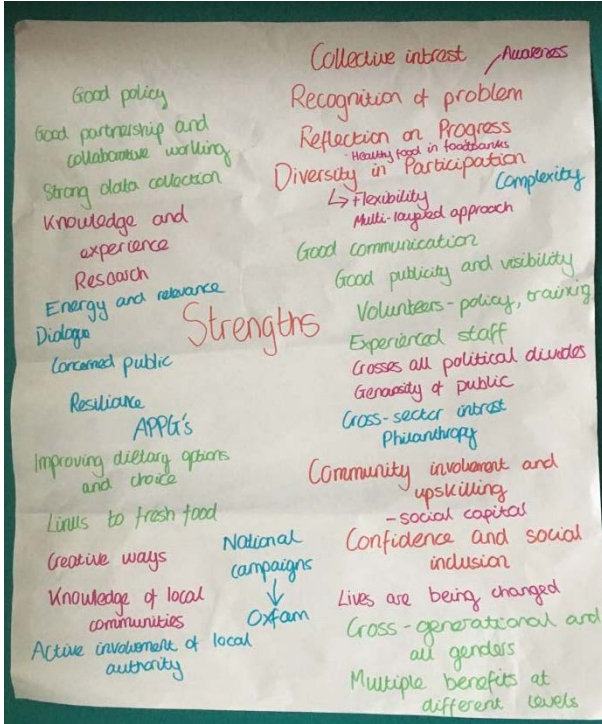 Good policy
Good partnership and
collaborative working
Strong data collection
Knowledge and
experience
Research
Energy and relevance
Dialogue
Concerned public
Resiliance
APPG's
Improving dietary options
and choice
Links to fresh food
Creative ways
Knowledge of local
communities
Active involvment of local
authority
National
campaigns
↓
Oxfam
Strengths
Collective intrest
Awareness
Recognition of problem
Reflection on Progress
- Healthy food in foodbanks
Diversity in Participation
↳ Flexibility
Multi-layered approach
Complexity
Good communication
Good publicity and visibility
Volunteers - policy, training
Experienced staff
Crosses all political divides
Generosity of public
Cross-sector intrest
Philanthropy
Community involvment and
upskilling
- social capital
Confidence and social
inclusion
Lives are being changed
Cross-generational and
all genders
Multiple benefits at
different levels